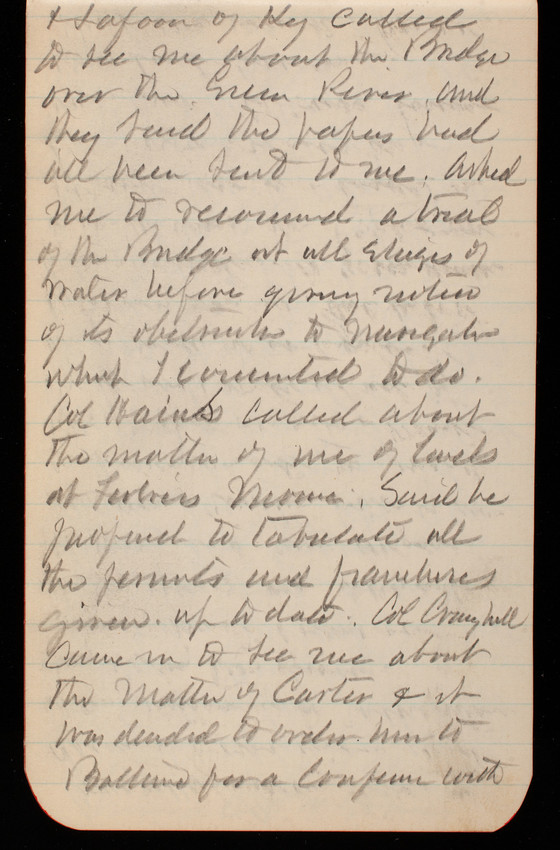 & Lafoon of Ky called
to see me about the Bridge
over the Green River and
they said the papers had
all been sent to me. Asked
me to recommend a trial
of the Bridge at all stages of
water before giving notice
of its obstruction to navigation
which I consented to do.
Col Hains called about
the matter of use of levels
at Fortress Monroe. Said he
proposed to tabulate all
the permits and franchises
given up to date. Col Craighill
came in to see me about
the matter of Carter & it
was decided to order him to
Baltimore for a conference with